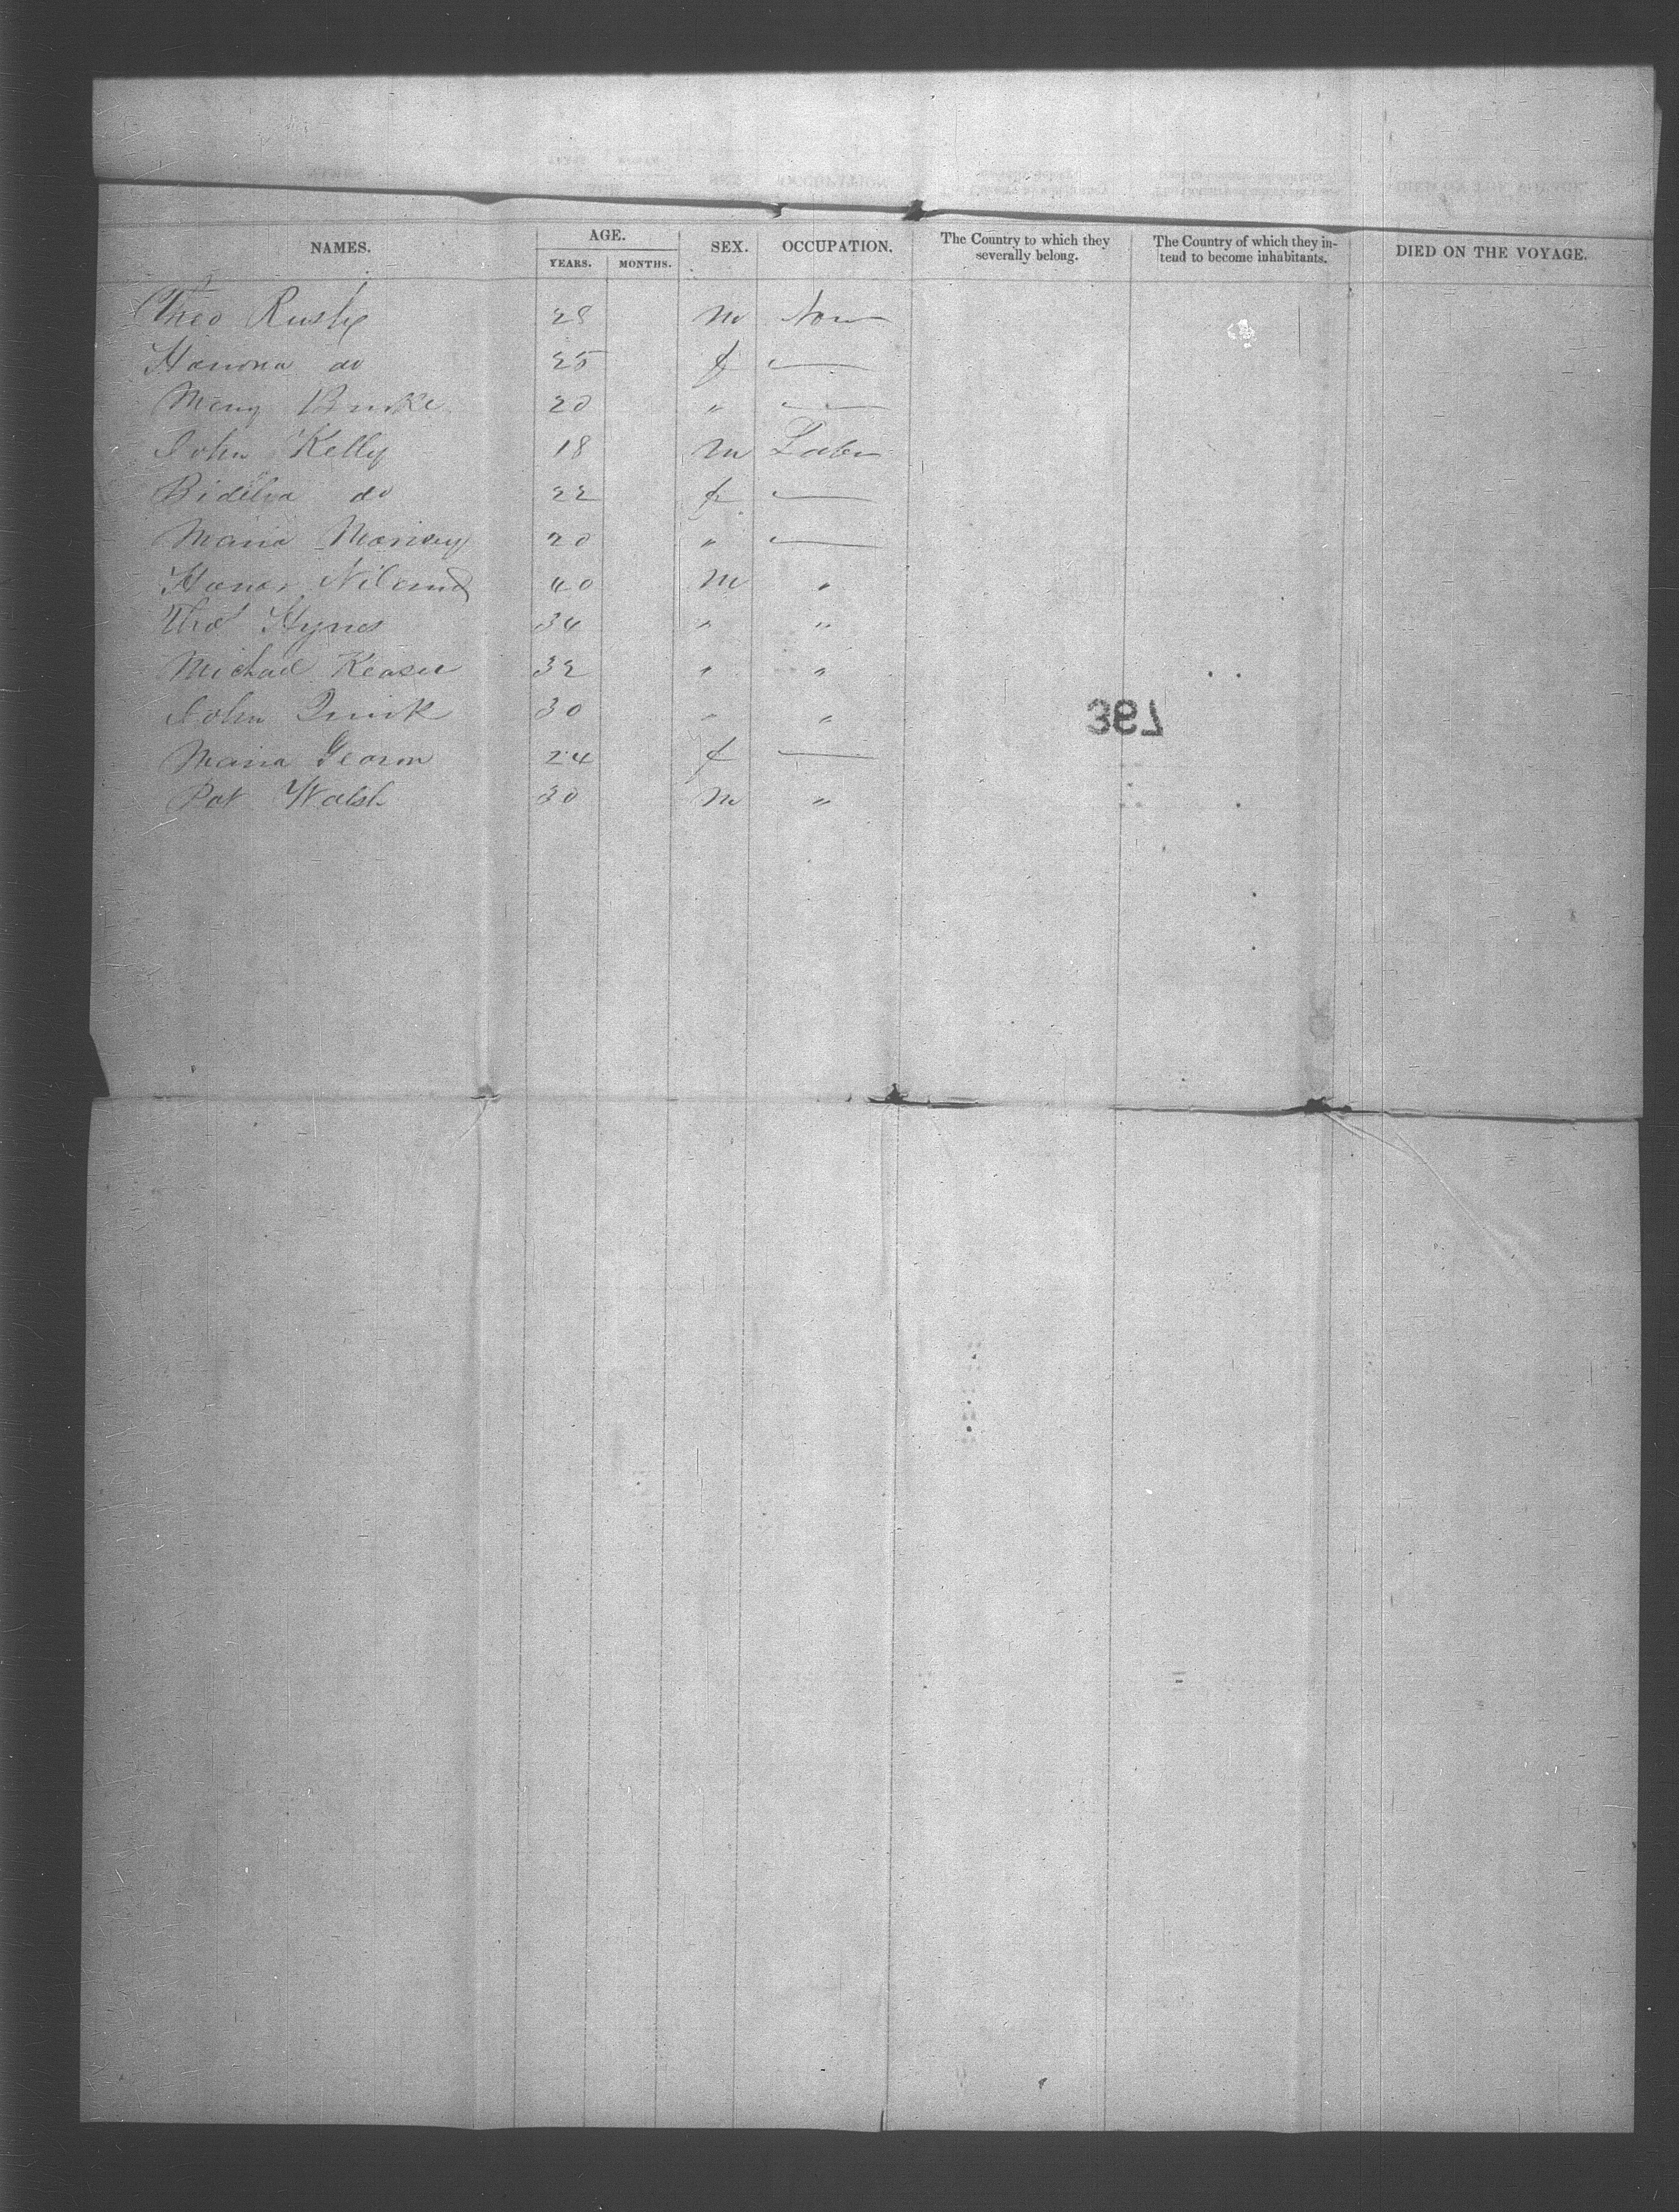 NAMES. AGE. SEX. OCCUPATION. The Country to which they severally belong. The Country of which they intend to become inhabitants. DIED ON THE VOYAGE.
YEARS. MONTHS.
Theo 28 m
Hanora do 25 f —
Mary Burke 20 " —
John Kelly 18 m Labr
Bidelia do 22 f —
Maria 20 " —
Honor Niland 40 m "
Thos Hynes 34 " "
Michael 32 " "
John Quirk 30 " "
Maria 24 f —
Pat Walsh 30 m "
387